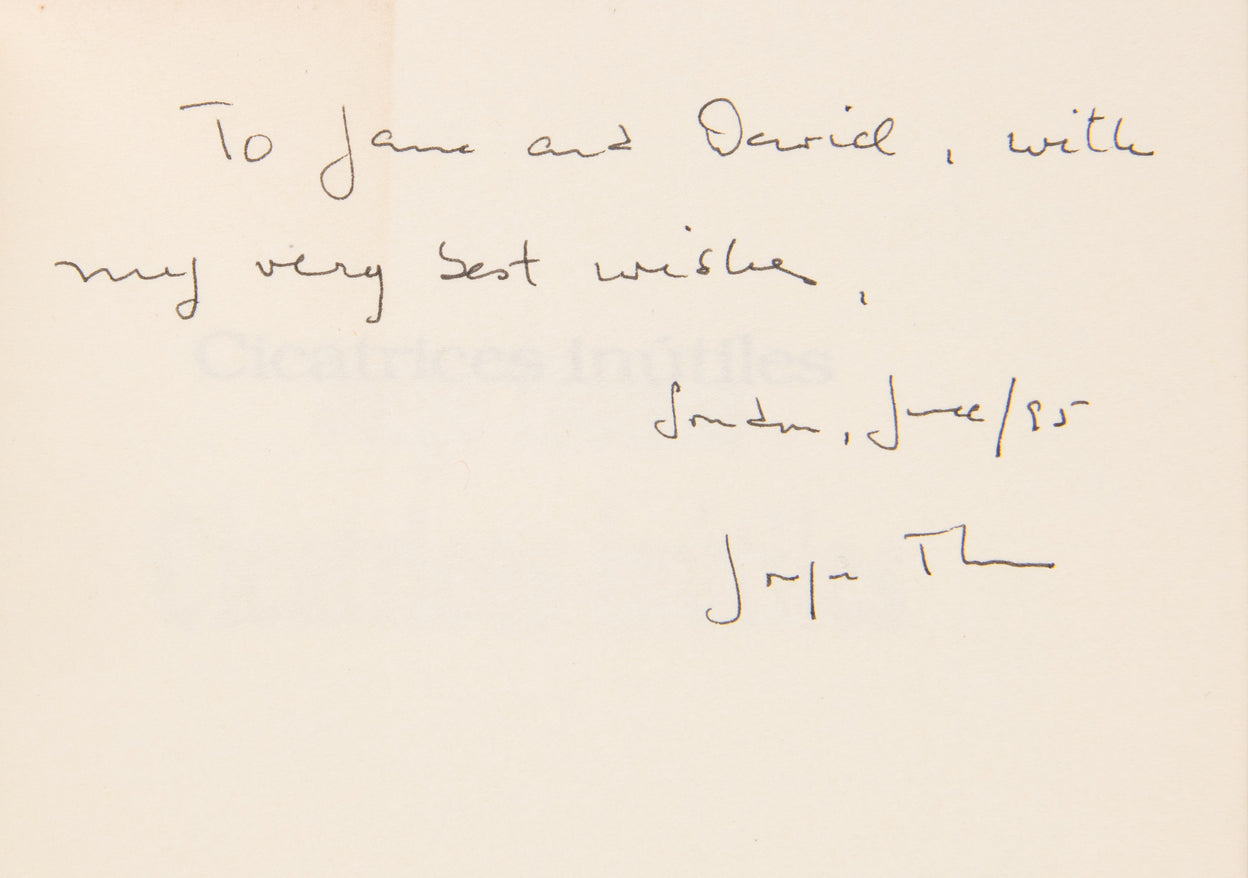 To Jane and David, with
my very best wishes,
Cicatrices Inútiles
London, June/95
Jorge